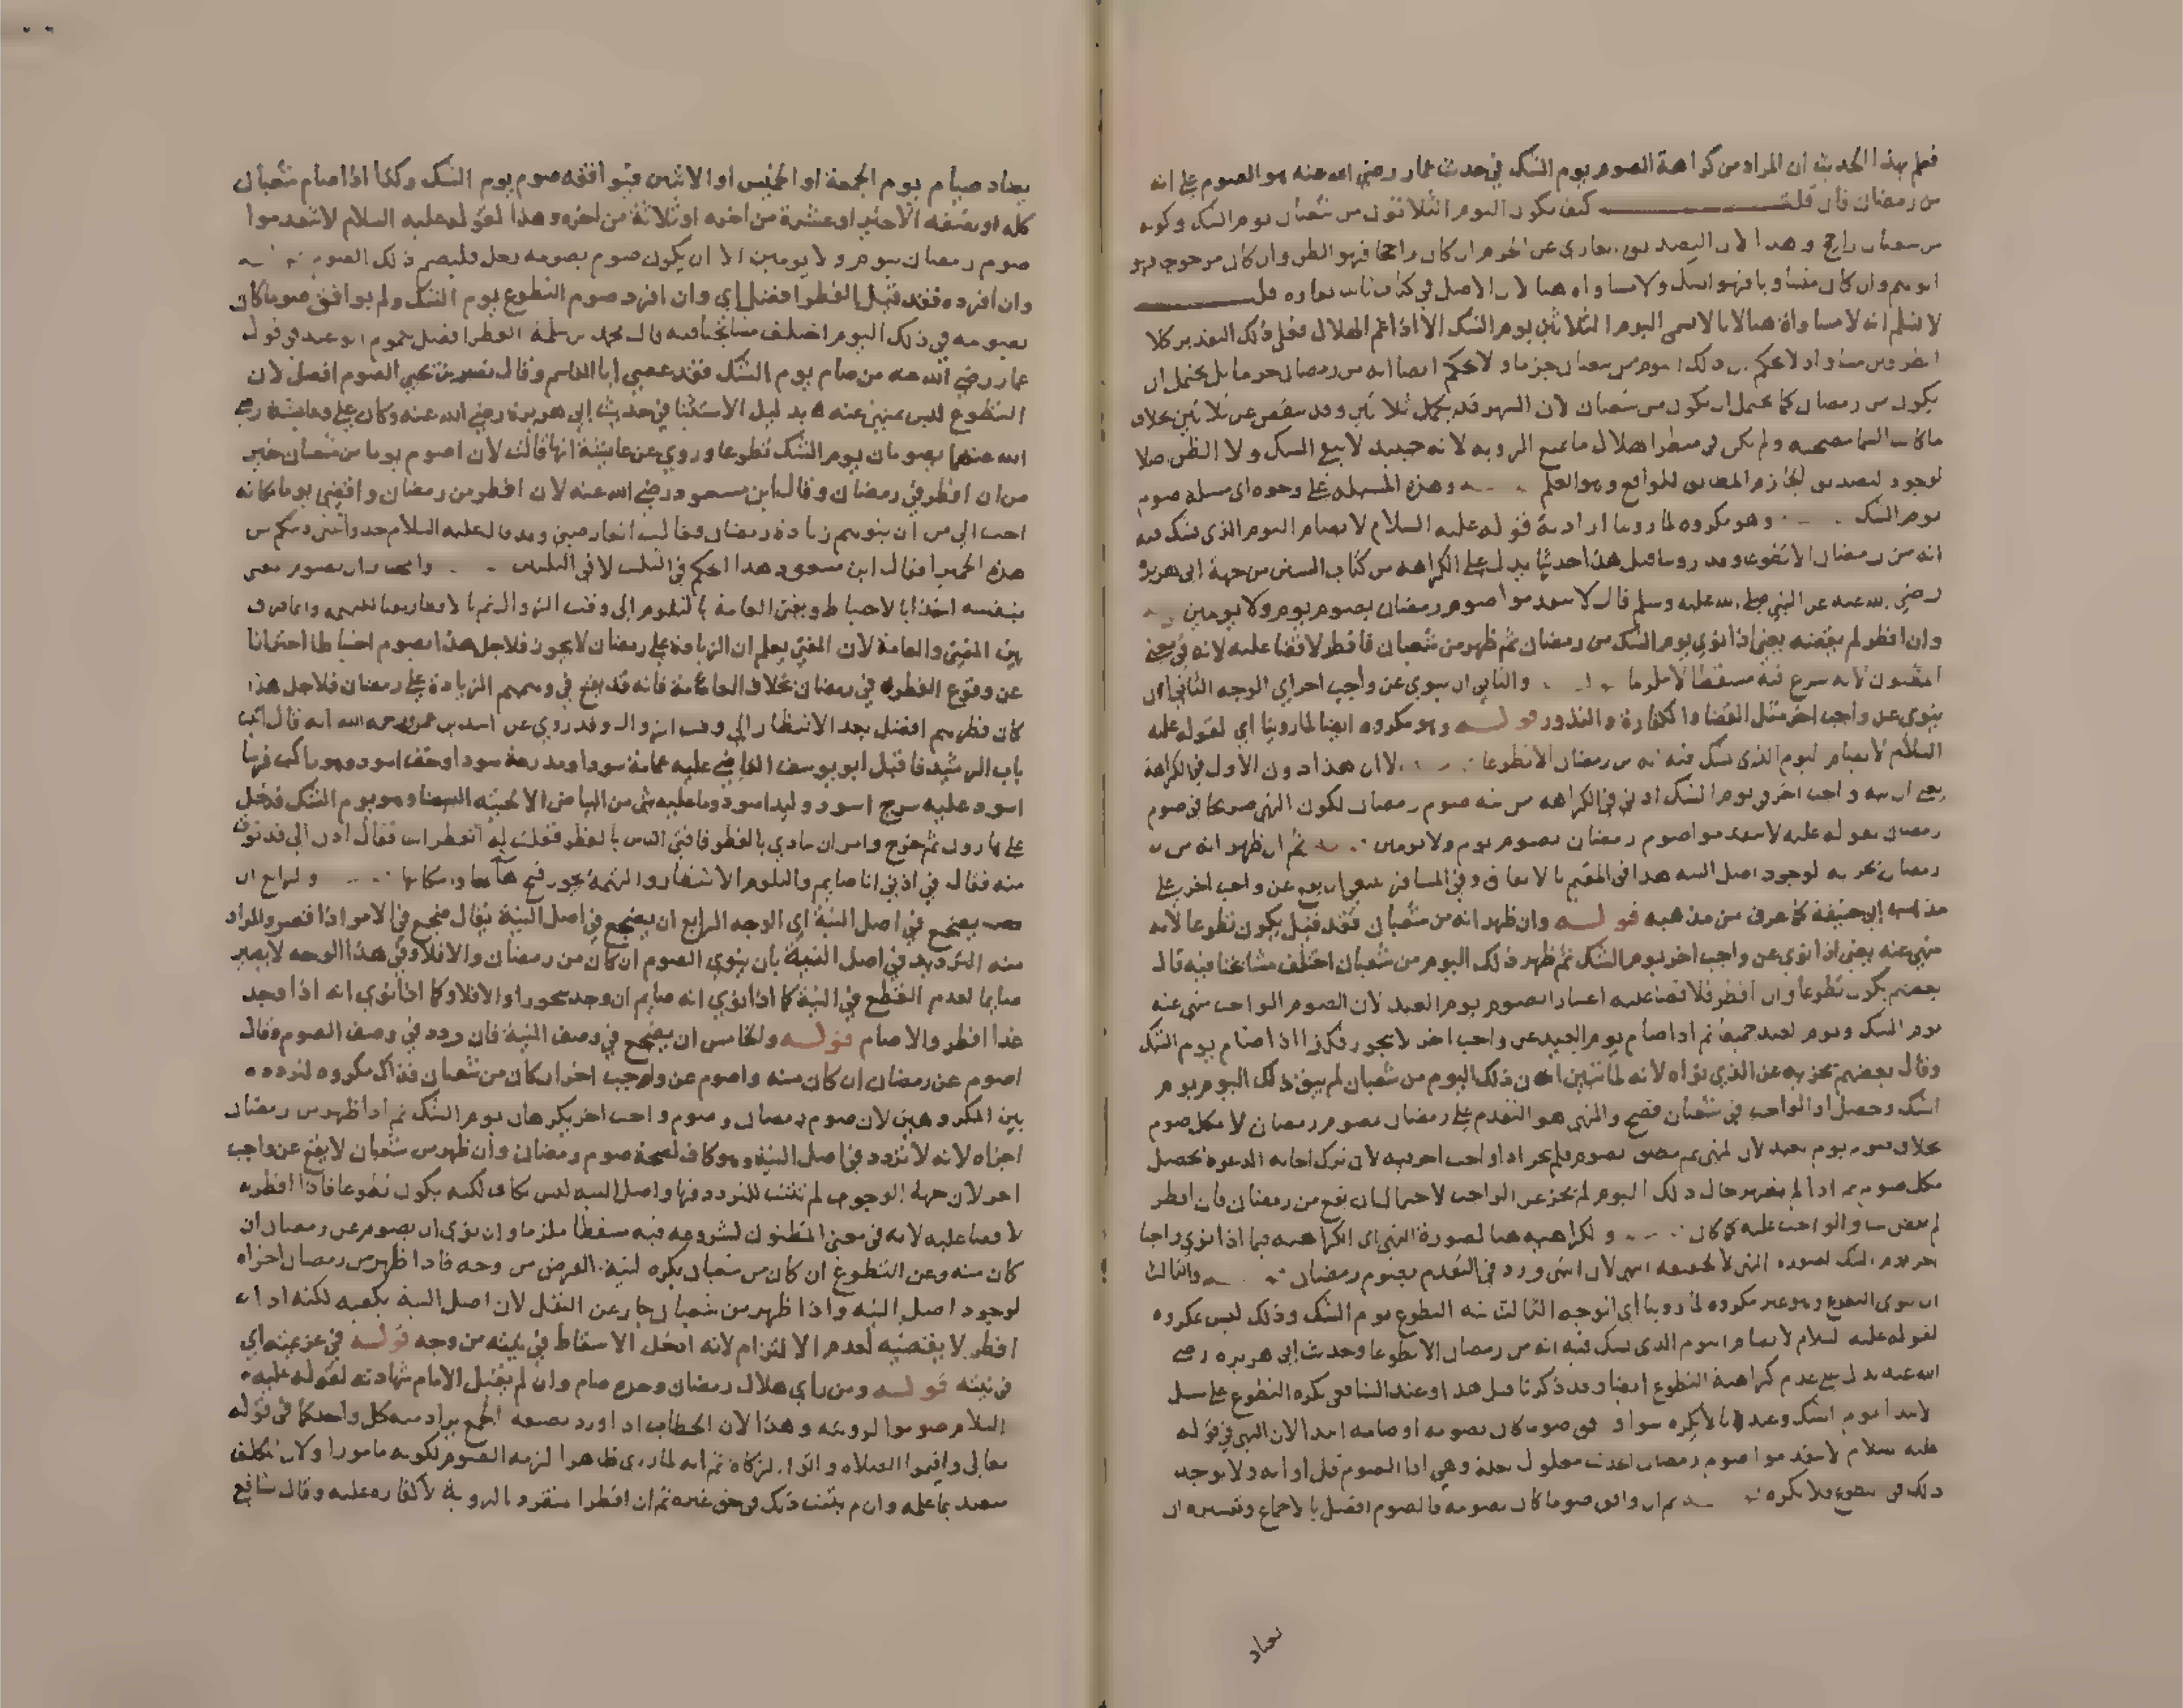 فعلم بهذا الحديث ان المراد من كراهة الصوم يوم الشك في حديث عمار رضي الله عنه هو الصوم على انه
من رمضان فان قلت كيف يكون اليوم الثلاثون من شعبان يوم الشك وكونه
من شعبان راجح وهذا لان التصديق ان كان راجحا فهو الظن وان كان مرجوحا فهو
الوهم وان كان متساويا فهو الشك ولا مساواة هنا لان الاصل في كل ثابت بقاره قلت
لا نسلم انه لا مساواة هنا لانا لا نسمي اليوم الثلاثين يوم الشك الا اذا غم الهلال فعلى ذلك التقدير كلا
الطرفين متساو اذ لا نحكم بان ذلك اليوم من شعبان جزما ولا نحكم ايضا انه من رمضان جزما بل يحتمل ان
يكون من رمضان كما يحتمل ان يكون من شعبان لان الشهر قد يكمل ثلاثين وقد ينقص عن ثلاثين بخلاف
ما كانت السما مصحية ولم يكن في مطر الهلال ما يمنع الروية لانه حينيذ لا يبقى الشك ولا الظن اصلا
لوجود التصديق الجازم المطابق للواقع وهو العلم وهذه المسئلة على وجوه اي مسئلة صوم
يوم الشك وهو مكروه لما روينا اراد به قوله عليه السلام لا يصام اليوم الذي يشك فيه
انه من رمضان الا تطوعا وقد روينا قبل هذا حديثا يدل على الكراهه من كتاب السنن من جهة ابي هريرة
رضي الله عنه عن النبي صلى الله عليه وسلم قال لا تقدموا صوم رمضان بصوم يوم ولا يومين
وان افطر لم يقضه يعني اذا نوى يوم الشك من رمضان ثم ظهر من شعبان فافطر لا قضا عليه لانه في معنى
المظنون لانه شرع فيه مسقطا لا ملزما والثاني ان ينوي عن واجب اخر اي الوجه الثاني ان
ينوي عن واجب اخر مثل القضا والكفارة والنذور قوله وهو مكروه ايضا لما روينا اي لقوله عليه
السلام لا يصام اليوم الذي يشك فيه انه من رمضان الا تطوعا الا ان هذا دون الاول في الكراهة
يعني ان نية واجب اخر في يوم الشك ادنى في الكراهه من نية صوم رمضان لكون النهي صريحا في صوم
رمضان بقوله عليه لا تقدموا صوم رمضان بصوم يوم ولا يومين ثم ان ظهر انه من
رمضان يجزيه لوجود اصل النيه هذا في المقيم بالاتفاق وفي المسافر ينبغي ان يقع عن واجب اخر على
مذهب ابي حنيفة كما عرف من مذهبه قوله وان ظهر انه من شعبان فقد قيل يكون تطوعا لانه
منهي عنه يعني اذا نوى عن واجب اخر يوم الشك ثم ظهر ذلك اليوم من شعبان اختلف مشايخنا فيه قال
بعضهم يكون تطوعا وان افطر فلا قضا عليه اعتبارا بصوم يوم العيد لان الصوم الواجب منهي عنه
يوم الشك ويوم العيد جميعا ثم اذا صام يوم العيد عن واجب اخر لا يجوز فكذا اذا صام يوم الشك
وقال بعضهم يجزيه عن الذي نواه لانه لما تبين ان ذلك اليوم من شعبان لم يبق ذلك اليوم يوم
الشك وحصل اذا الواجب في شعبان فصح والمنهي هو التقدم على رمضان بصوم رمضان لا بكل صوم
بخلاف صوم يوم العيد لان المنهي ثم مطلق الصوم فلم يجز اداء واجب اخر فيه لان ترك اجابه الدعوة يحصل
بكل صوم ثم اذا لم يظهر حال ذلك اليوم لم يجز عن الواجب لاحتمال ان يقع من رمضان فان افطر
لم يقض شيا والواجب عليه كما كان والكراهيه هنا لصورة النهي اي الكراهيه فيما اذا نوى واجبا
اخر يوم الشك لصوره النهي لا لحقيقه النهي لان النهي ورد في التقدم بصوم رمضان والثالث
ان ينوي التطوع وهو غير مكروه لما روينا اي الوجه الثالث نية التطوع يوم الشك وذلك ليس بمكروه
لقوله عليه السلام لا يصام اليوم الذي يشك فيه انه من رمضان الا تطوعا وحديث ابي هريره رضي
الله عنه يدل على عدم كراهية التطوع ايضا وقد ذكرنا قبل هذا وعند الشافعي يكره التطوع على سبيل
الابتدا يوم الشك وعندنا لا يكره سوا وافق صوما كان يصومه او صامه ابتدا لان النهي في قوله
عليه السلام لا تقدموا صوم رمضان الحديث معلول بعلة وهي اداء الصوم قبل اوانه ولا يوجد
ذلك في التطوع فلا يكره ثم ان وافق صوما كان يصومه فالصوم افضل بالاجماع وتفسيره ان
يعتاد
يعتاد صيام يوم الجمعة او الخميس او الاثنين فيوافقه صوم يوم الشك وكذا اذا صام شعبان
كله او نصفه الاخير او عشرة من اخره او ثلاثة من اخره وهذا لقوله عليه السلام لا تتقدموا
صوم رمضان بيوم ولا يومين الا ان يكون صوم يصومه رجل فليصم ذلك الصوم
وان افرده فقد قيل الفطر افضل اي وان افرد صوم التطوع يوم الشك ولم يوافق صوما كان
يصومه في ذلك اليوم اختلف مشايخنا فيه قال محمد بن سلمة الفطر افضل لعموم الوعيد في قول
عمار رضي الله عنه من صام يوم الشك فقد عصى ابا القاسم وقال نصير بن يحيى الصوم افضل لان
التطوع ليس بمنهي عنه بدليل الاستثنا في حديث ابي هريرة رضي الله عنه وكان علي وعايشة رضي
الله عنهما يصومان يوم الشك تطوعا وروي عن عايشة انها قالت لان اصوم يوما من شعبان خير
من ان افطر في رمضان وقال ابن مسعود رضي الله عنه لان افطر من رمضان واقضي يوما مكانه
احب الي من ان يتوهم زيادة رمضان
هذه الحميرا فقال ابن مسعود هذا الحكم والمختار ان يصوم المفتي
بنفسه اخذا بالاحتياط ويفتي العامة بالتلوم الى وقت الزوال ثم بالافطار نفيا للتهمه وانما فرق
بين المفتي والعامة لان المفتي يعلم ان الزيادة على رمضان لا يجوز فلاجل هذا يصوم احتياطا احترازا
عن وقوع الفطر في رمضان بخلاف العامة فانه قد يقع في وهمهم الزيادة على رمضان فلاجل هذا
كان فطرهم افضل بعد الانتظار الى وقت الزوال وقد روي عن اسد بن عمرو رحمه الله انه قال اتيت
باب الرشيد فاقبل ابو يوسف القاضي عليه عمامة سودا ومدرعة سودا وخف اسود وهو راكب فرسا
اسود عليه سرج اسود ولبد اسود وما عليه شي من البياض الا لحيته البيضا وهو يوم الشك فدخل
على هارون ثم خرج وامر ان ينادي بالفطر فافتى الناس بالفطر فقلت له امفطر انت فقال ادن الي فدنوت
منه فقال في اذني انا صايم والتلوم الانتظار والتهمة يجوز فتح هآيها واسكانها والرابع ان
يضجع في اصل النية اي الوجه الرابع ان يضجع في اصل النية يقال ضجع في الامر اذا قصر والمراد
منه الترديد في اصل النية بان ينوي الصوم ان كان من رمضان والا فلا وفي هذا الوجه لا يصير
صايما لعدم القطع في النية كما اذا نوى انه صايم ان وجد سحورا والا فلا وكما اذا نوى انه اذا وجد
غدا افطر والا صام قوله والخامس ان يضجع في وصف النية فان ردد في وصف الصوم وقال
اصوم عن رمضان ان كان منه واصوم عن واجب اخر ان كان من شعبان فذاك مكروه لتردده
بين المكروهين لان صوم رمضان وصوم واجب اخر يكرهان يوم الشك ثم اذا ظهر من رمضان
اجزاه لانه لا تردد في اصل النية وهو كاف لصحة صوم رمضان وان ظهر من شعبان لا يقع عن واجب
اخر لان جهة الوجوب لم تثبت للتردد فيها واصل النيه ليس بكاف لكنه يكون تطوعا فاذا افطر
لا قضا عليه لانه في معنى المظنون لشروعه فيه مسقطا لا ملزما وان نوى ان يصوم عن رمضان ان
كان منه وعن التطوع ان كان من شعبان يكره لنية الفرض من وجه فاذا ظهر من رمضان اجزاه
لوجود اصل النيه واذا ظهر من شعبان جاز عن النفل لان اصل النية يكفيه لكنه اذا
افطر لا يقضيه لعدم الالتزام لانه ادخل الاسقاط في نيته من وجه قوله في عزيمته اي
في نيته قوله ومن راى هلال رمضان وحده صام وان لم يقبل الامام شهادته لقوله عليه
السلام صوموا لرويته وهذا لان الخطاب اذا ورد بصيغة الجمع يراد به كل واحد كما في قوله
تعالى واقيموا الصلاة واتوا الزكاة ثم انه لما راى ظاهرا لزمه الصوم لكونه مامورا ولان التكليف
بما علمه وان لم يثبت ذلك في حق غيره ثم ان افطر المنفرد بالروية لا كفاره عليه وقال الشافعي